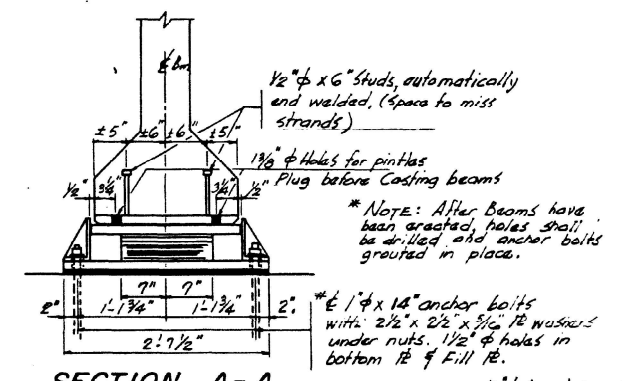 ℄ Bm.
1/2"ϕ x 6" Studs, automatically
end welded. (Space to miss
strands)
±5" ±6" ±6" ±5"
1 3/8" ϕ Holes for pintles
Plug before Casting beams
1/2" 3 1/4" 3 1/4" 1/2"
* NOTE: After Beams have
been erected, holes shall
be drilled and anchor bolts
grouted in place.
7" 7"
2" 1'-1 3/4" 1'-1 3/4" 2"
2'-7 1/2"
* ℄ 1"ϕ x 14" anchor bolts
with 2 1/2" x 2 1/2" x 5/16" ⅊ washers
under nuts. 1 1/2" ϕ holes in
bottom ⅊ & Fill ⅊.
SECTION A-A